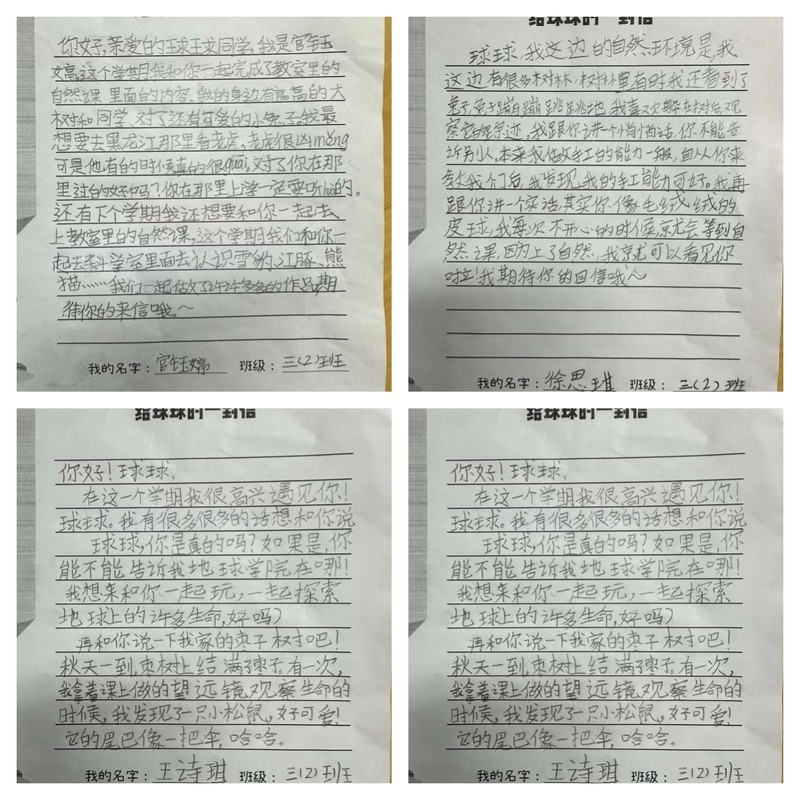 你好,亲爱的球球同学,我是官钰
婷,这个学期我和你一起完成了教室里的
自然课里面的内容。我的身边有高高的大
树和同学,对了还有可爱的小兔子。我最
想要去黑龙江那里看老虎,老虎很凶měng
可是他有的时候真的很guāi,对了你在那
里过的好吗?你在那里上学一定要听huà的。
还有下个学期我还想要和你一起去
上教室里的自然课,这个学期我们和你一
起去科学室里面去认识雪豹、江豚、熊
猫……我们一起做了许许多多的作品期
待你的来信哦。~
我的名字:官钰婷 班级:三(2)班
给球球的一封信
球球,我这边的自然环境是,我
这边有很多树林,树林里有时我还看到了
兔子,兔子蹦蹦跳跳地,我喜欢躲在树后观
察它的踪迹,我跟你讲一个悄悄话,你不能告
诉别人,本来我做手工的能力一般,自从你来
教我们后,我发现,我的手工能力可好。我再
跟你讲一个实话,其实你像毛绒绒的
皮球,我每次不开心的时候,就会等到自
然课,因为上了自然,我就可以看见你
啦!我期待你的回信哦~
我的名字:徐思琪 班级:三(2)班
给球球的一封信
你好!球球,
在这一个学期我很高兴遇见你!
球球。我有很多很多的话想和你说
球球,你是真的吗?如果是,你
能不能告诉我地球学院在哪!
我想来和你一起玩,一起探索
地球上的许多生命,好吗?
再和你说一下我家的枣子树吧!
秋天一到,枣树上结满了枣子.有一次,
我拿着课上做的望远镜观察生命的
时候,我发现了一只小松鼠。好可爱!
它的尾巴像一把伞,哈哈。
我的名字:王诗琪 班级:三(2)班
给球球的一封信
你好!球球,
在这一个学期我很高兴遇见你!
球球。我有很多很多的话想和你说
球球,你是真的吗?如果是,你
能不能告诉我地球学院在哪!
我想来和你一起玩,一起探索
地球上的许多生命,好吗?
再和你说一下我家的枣子树吧!
秋天一到,枣树上结满了枣子.有一次,
我拿着课上做的望远镜观察生命的
时候,我发现了一只小松鼠。好可爱!
它的尾巴像一把伞,哈哈。
我的名字:王诗琪 班级:三(2)班